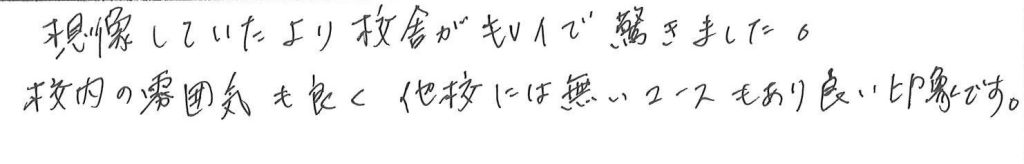 想像していたより校舎がキレイで驚きました。
校内の雰囲気も良く他校には無いコースもあり良い印象です。